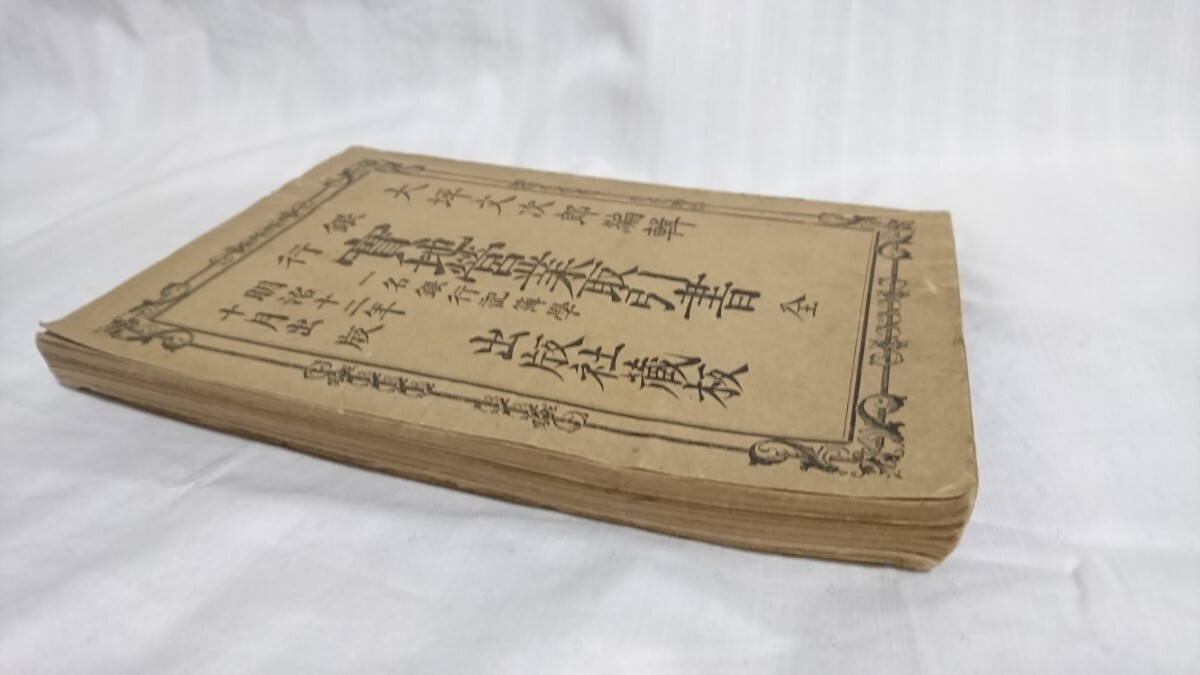 大坪文次郎編輯
銀行 實地營業取引書 全
一名銀行簿學
明治十二年
十月出版
出版社藏板